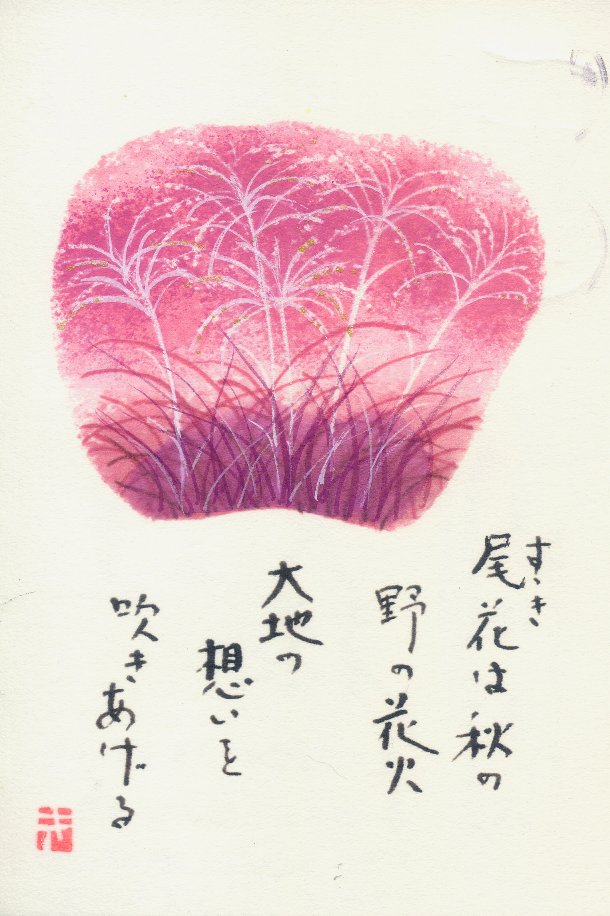 すゝき
尾花は秋の
野の花火
大地の
想いを
吹きあげる